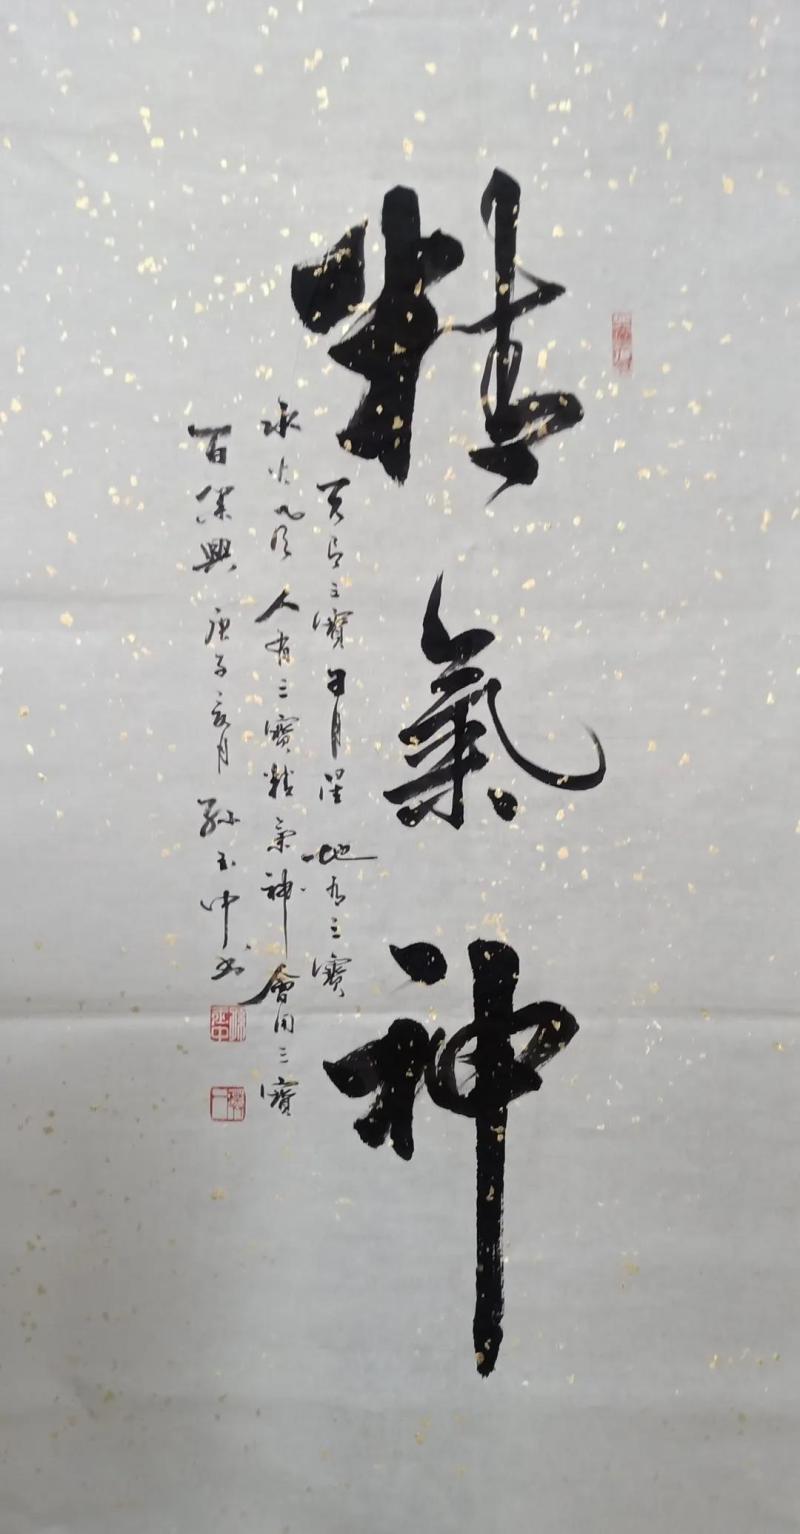 精氣神
天有三寶日月星地有三寶
水火風人有三寶精氣神會用三寶
百業興庚子亥月孫玉中书